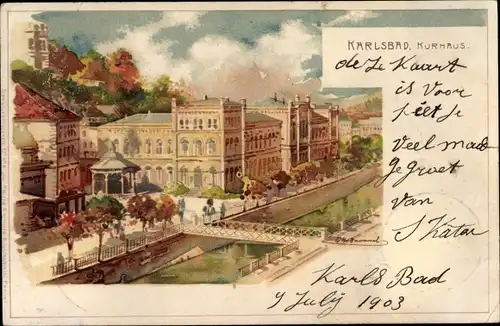 KARLSBAD, KURHAUS.
deze Kaart
is Voor
Je
Veel maal
Gegroet
Van
S Kater
Karls Bad
9 July 1903